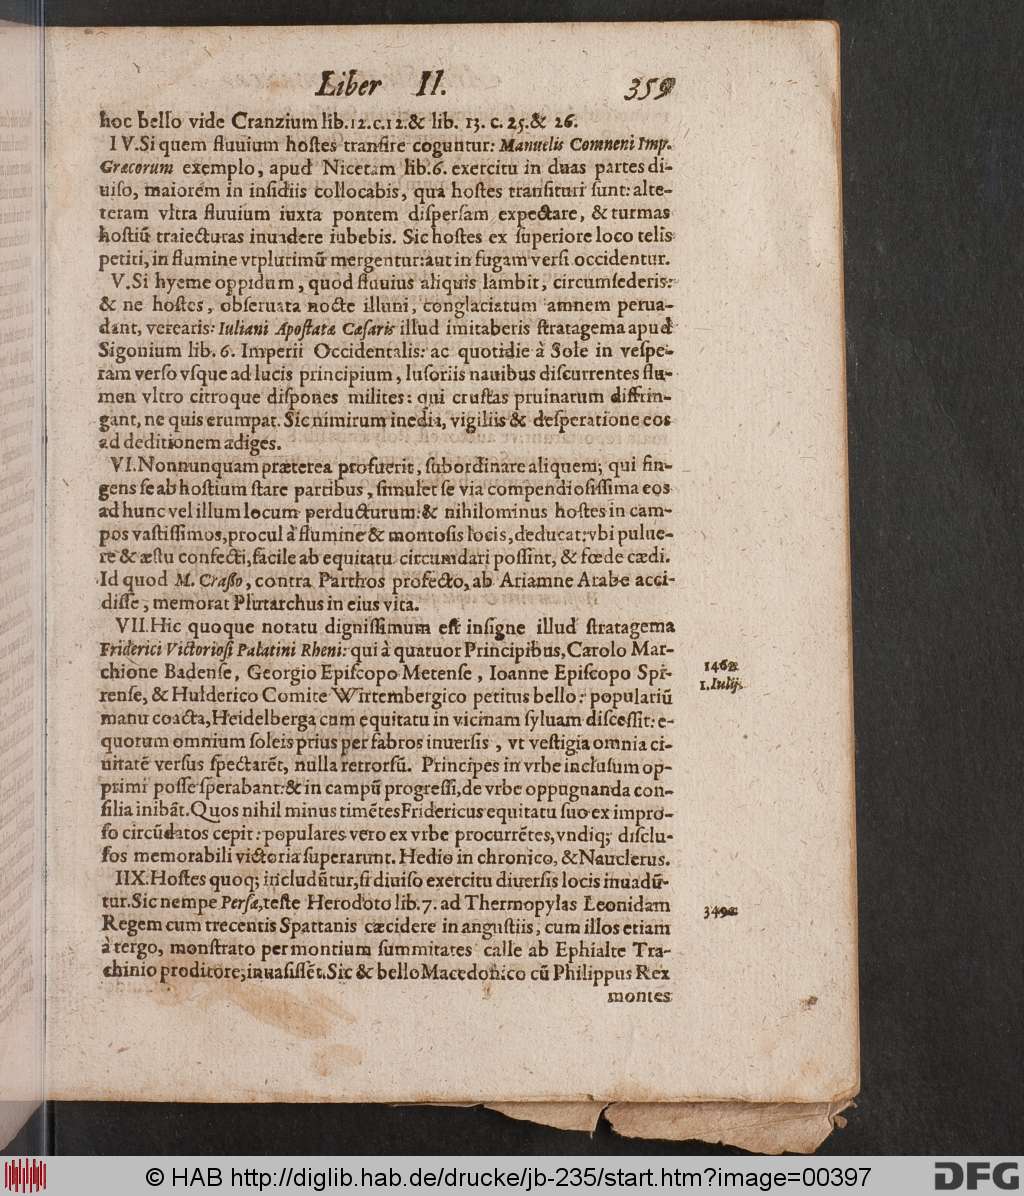 Liber II. 359
hoc bello vide Cranzium lib. 12. c. 12. & lib. 13. c. 25. & 26.
IV. Si quem fluuium hostes transire coguntur: Manuelis Comneni Imp.
Græcorum exemplo, apud Nicetam lib. 6. exercitu in duas partes di-
uiso, maiorem in insidiis collocabis, qua hostes transituri sunt: alte-
teram vltra fluuium iuxta pontem dispersam expectare, & turmas
hostiũ traiecturas inuadere iubebis. Sic hostes ex superiore loco telis
petiti, in flumine vtplurimũ mergentur: aut in fugam versi occidentur.
V. Si hyeme oppidum, quod fluuius aliquis lambit, circumsederis:
& ne hostes, obseruata nocte illuni, conglaciatum amnem perua-
dant, verearis: Iuliani Apostatæ Cæsaris illud imitaberis stratagema apud
Sigonium lib. 6. Imperii Occidentalis: ac quotidie à Sole in vespe-
ram verso vsque ad lucis principium, lusoriis nauibus discurrentes flu-
men vltro citroque dispones milites: qui crustas pruinarum diffrin-
gant, ne quis erumpat. Sic nimirum inedia, vigiliis & desperatione eos
ad deditionem adiges.
VI. Nonnunquam præterea profuerit, subordinare aliquem; qui fin-
gens se ab hostium stare partibus, simulet se via compendiosissima eos
ad hunc vel illum locum perducturum: & nihilominus hostes in cam-
pos vastissimos, procul à flumine & montosis locis, deducat: vbi pulue-
re & æstu confecti, facile ab equitatu circumdari possint, & fœde cædi.
Id quod M. Crasso, contra Parthos profecto, ab Ariamne Arabe acci-
disse, memorat Plutarchus in eius vita.
VII. Hic quoque notatu dignissimum est insigne illud stratagema
Friderici Victoriosi Palatini Rheni: qui à quatuor Principibus, Carolo Mar-
chione Badense, Georgio Episcopo Metense, Ioanne Episcopo Spi-
rense, & Hulderico Comite Wirtembergico petitus bello: populariũ
manu coacta, Heidelberga cum equitatu in vicinam syluam discessit: e-
quorum omnium soleis prius per fabros inuersis, vt vestigia omnia ci-
uitatẽ versus spectarẽt, nulla retrorsũ. Principes in vrbe inclusum op-
primi posse sperabant: & in campũ progressi, de vrbe oppugnanda con-
silia inibãt. Quos nihil minus timẽtes Fridericus equitatu suo ex impro-
so circũdatos cepit: populares vero ex vrbe procurrẽtes, vndiq; disclu-
sos memorabili victoria superarunt. Hedio in chronico, & Nauclerus.
IIX. Hostes quoq; includũtur, si diuiso exercitu diuersis locis inuadũ-
tur. Sic nempe Persæ, teste Herodoto lib. 7. ad Thermopylas Leonidam
Regem cum trecentis Spartanis cæcidere in angustiis, cum illos etiam
à tergo, monstrato per montium summitates calle ab Ephialte Tra-
chinio proditore; inuasissẽt. Sic & bello Macedonico cũ Philippus Rex
montes
1462.
1. Iulij.
© HAB http://diglib.hab.de/drucke/jb-235/start.htm?image=00397
DFG